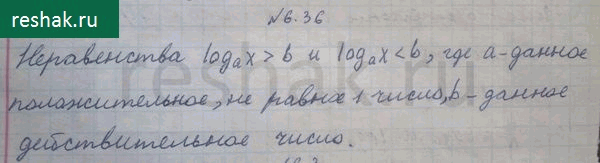 reshak.ru
№6.36
Неравенства logₐx > b и logₐx < b, где a - данное
положительное, не равное 1 число, b - данное
действительное число.